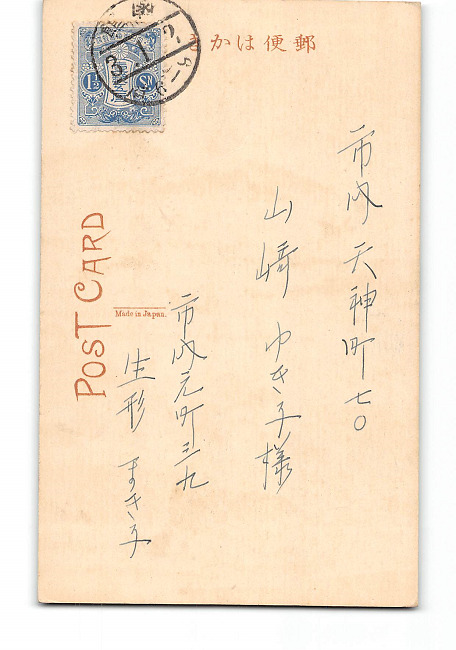 郵便はかき
市内天神町七〇
山崎ゆき子様
市内元町三九
生形まき子
POST CARD
Made in Japan.
1½ Sn